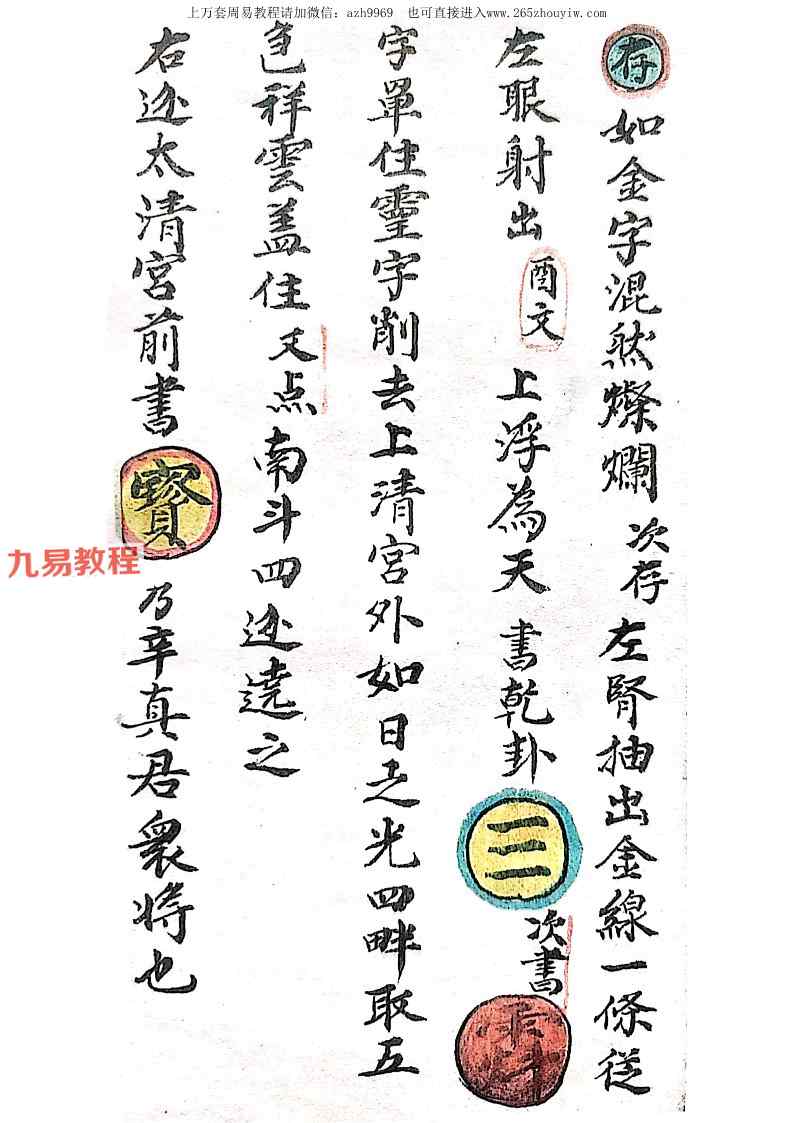 上万套周易教程请加微信：azh9969 也可直接进入www.265zhouyiw.com
存 如金字混然燦爛 次存左腎抽出金線一條從
左眼射出 酉文 上浮為天 書乾卦 ☰ 次書
字單住靈字削去上清宮外如日之光四畔取五
色祥雲盖住 又点南斗四迊遶之
右迊太清宮前書 寳 乃辛真君衆将也
九易教程